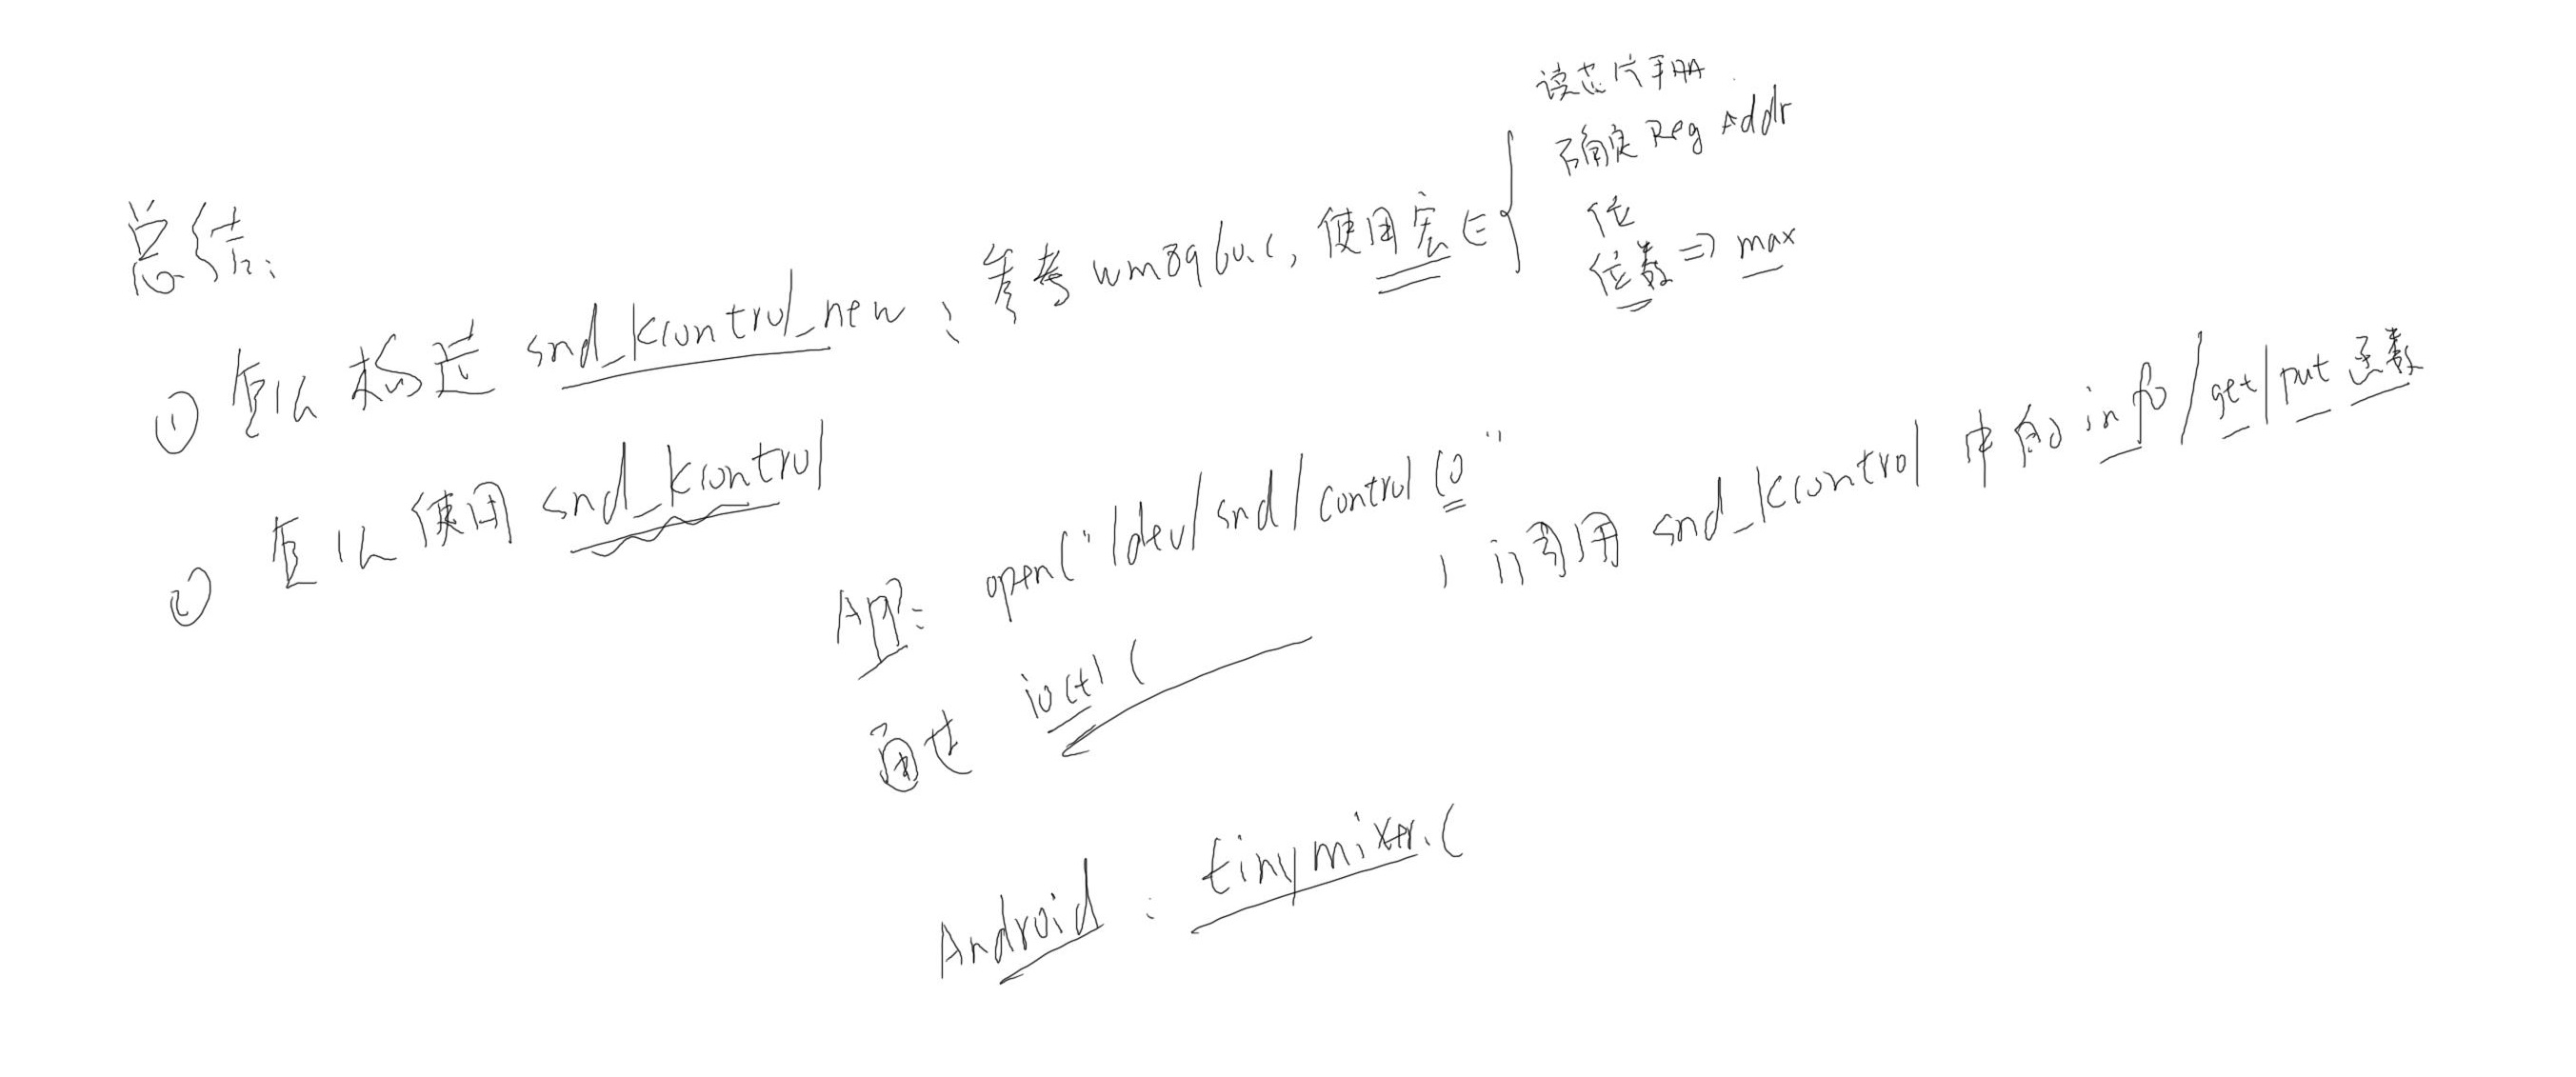 总结:
① 怎么构造 snd_kcontrol_new: 参考 wm8960.c, 使用宏 ∈ {
读芯片手册
确定 Reg Addr
位
位数 => max
② 怎么使用 snd_kcontrol
App: open("/dev/snd/controlC0"
通过 ioctl( ) 调用 snd_kcontrol 中的 info/get/put 函数
Android: tinymixer.c